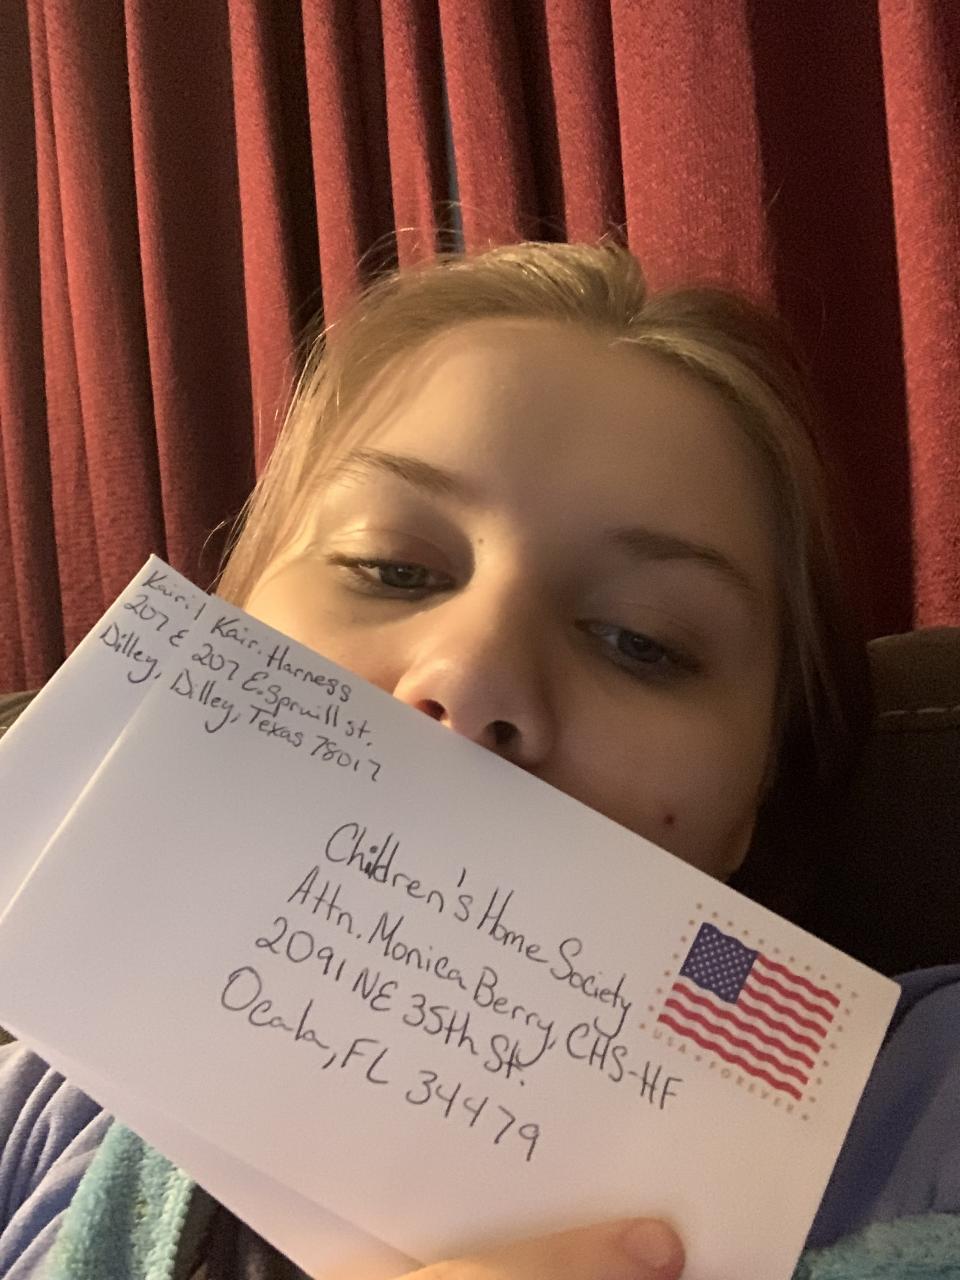 Kairi
207 E
Dilley,
Kairi Harness
207 E. Spruill St.
Dilley, Texas 78017
Children's Home Society
Attn. Monica Berry, CHS-HF
2091 NE 35th St.
Ocala, FL 34479
USA FOREVER